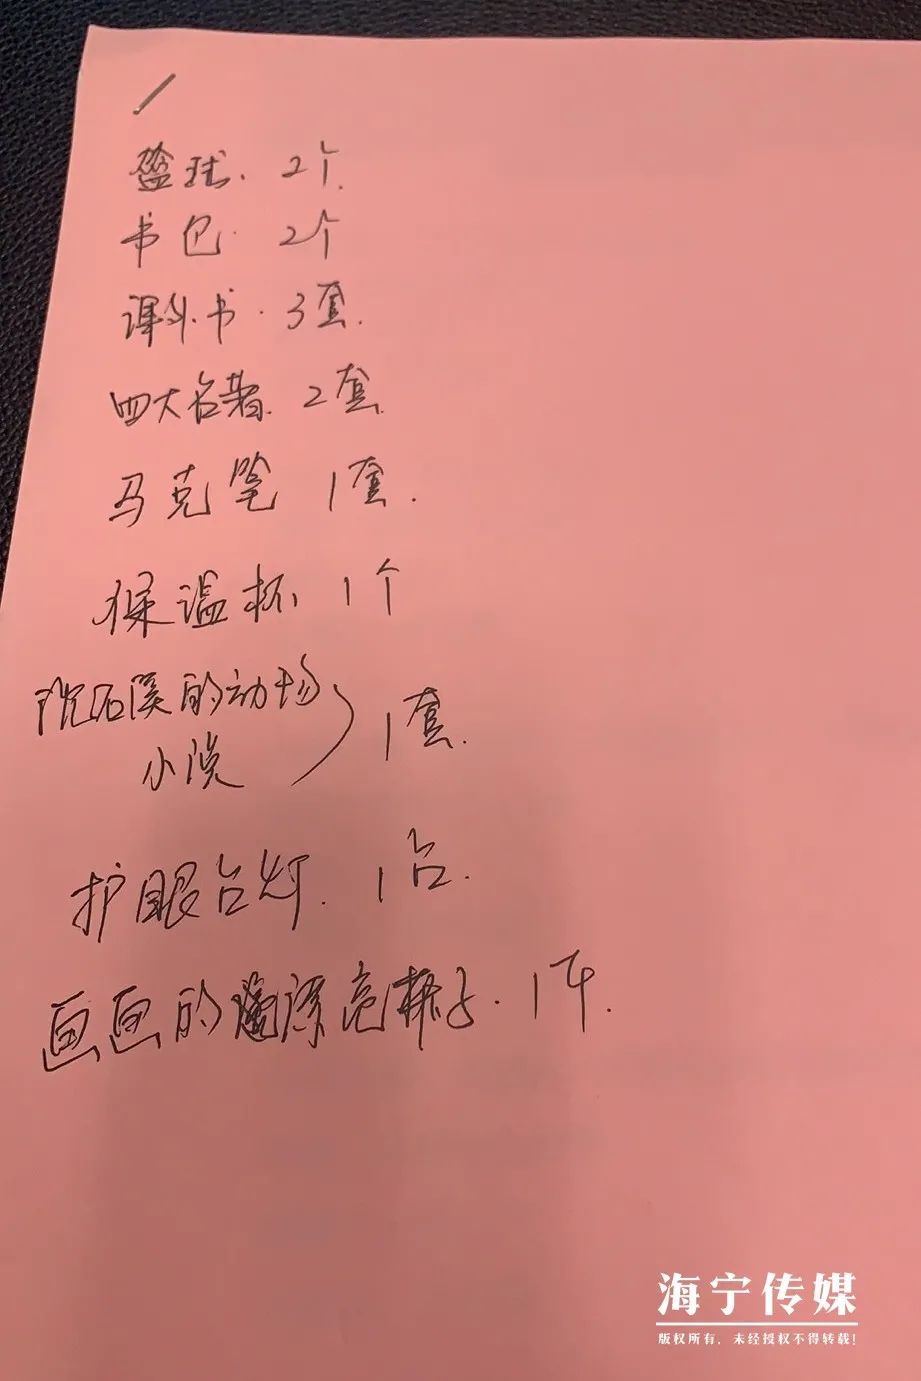 篮球. 2个.
书包. 2个
课外书. 3套.
四大名著. 2套.
马克笔 1套.
保温杯 1个
沈石溪的动物
小说
1套.
护眼台灯. 1台.
画画的漂亮裤子. 1个.
海宁传媒
版权所有，未经授权不得转载！